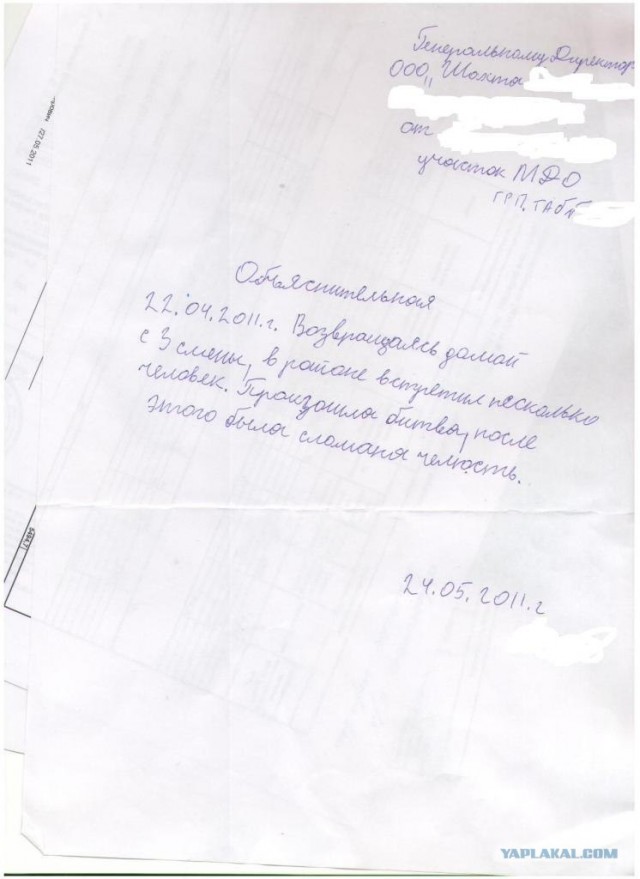 Генеральному Директор
ООО,, Шахта
от
участок МДО
ГРП, таб №
Объяснительная
22.04.2011.г. Возвращаясь домой
с 3 смены, в районе встретил несколько
человек. Произошла битва, после
этого была сломана челюсть.
24.05.2011.г
27.05.2011
YAPLAKAL.COM